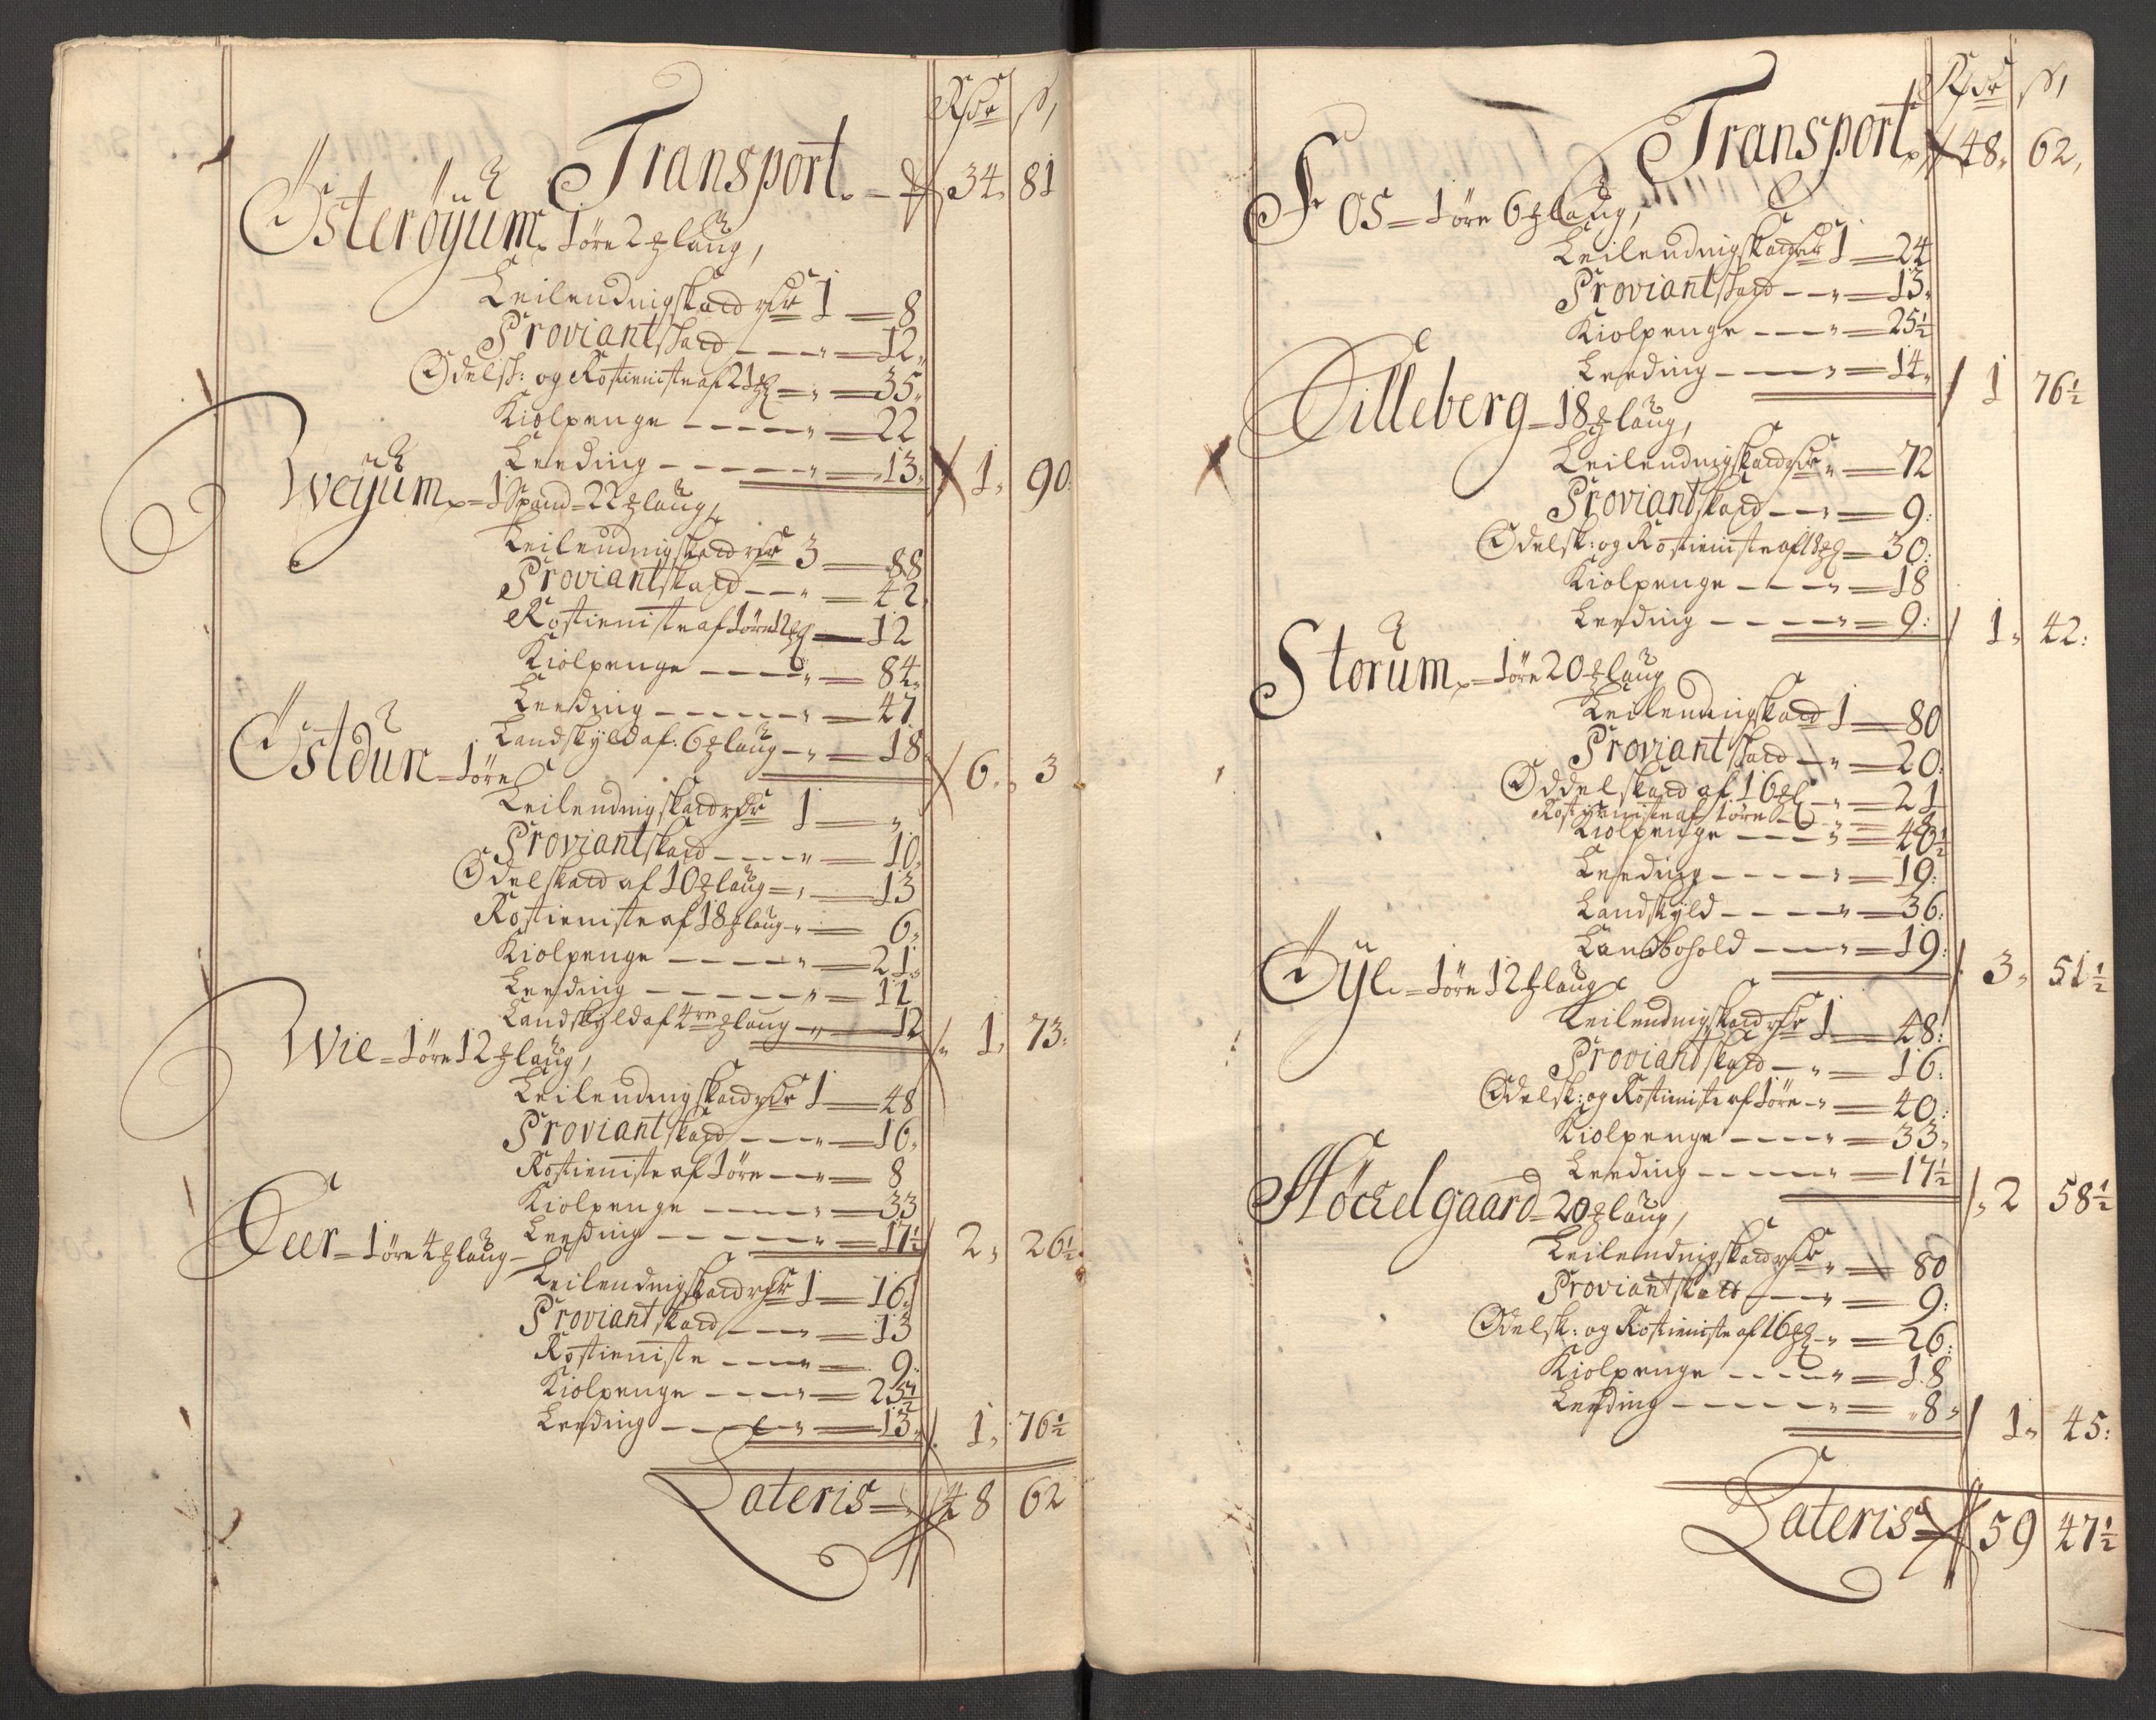 Rdr ß
Transport 34. 81
Österöyüm 1 öre 2 laug,
Leilendingskatt rdr 1 — 8
Proviantskatt — — — „ — 12
Odelsk: og Rostieniste af 21 — „ — 35
Kiolpenge — — — — „ — 22
Leeding — — — — „ — 13 1. 90
Weyüm 1 Spand 22 laug
Leilendingskatt rdr 3 — 88
Proviantskatt — — „ — 42
Rostieniste af 1 öre 12 — 12
Kiolpenge — — — „ — 84
Leeding — — — — „ — 47
Landskyld af: 6 laug — „ — 18 6. 3
Östdün 1 öre
Leilendingskatt rdr 1 — „
Proviantskatt — — — „ — 10
Odelskatt af 10 laug — , — 13
Rostieniste af 18 laug — „ — 6
Kiolpenge — — — — „ — 21
Leeding — — — — „ — 11
Landskyld af 4re laug — „ — 12 1. 73
Wie 1 öre 12 laug,
Leilendingskatt rdr 1 — 48
Proviantskatt — — — „ — 16
Rostieniste af 1 öre — „ — 8
Kiolpenge — — — „ — 33
Leeding — — — — „ — 17½ 2. 26½
Eer 1 öre 4 laug
Leilendingskatt rdr 1 — 16
Proviantskatt — — — „ — 13
Rostieniste — — — „ — 9
Kiolpenge — — — „ — 25½
Leeding — — — „ — 13 1. 76½
Lateris 48 62
Rdr ß
Transport 48. 62
Fos 1 öre 6 laug,
Leilendingskatt rdr 1 — 24
Proviantskatt — — „ — 13
Kiolpenge — — — „ — 25½
Leeding — — — „ — 14 1 76½
Tilleberg 18 laug,
Leilendingskatt rdr „ — 72
Proviantskatt — — „ — 9:
Odelsk: og Rostieniste af 18 — 30:
Kiolpenge — — — „ — 18
Leeding — — — — „ — 9: 1. 42:
Storüm 1 öre 20 laug
Leilendingskatt 1 — 80
Proviantskatt — „ — 20
Oddelskatt af 16 — „ — 21
Rostieniste af 1 öre — „ — 8
Kiolpenge — — — „ — 40½
Leeding — — — — „ — 19:
Landskyld — — — — „ — 36:
Landbohold — — — „ — 19: 3. 51½
Öye 1 öre 12 laug
Leilendingskatt rdr 1 — 48:
Proviantskatt — „ — 16:
Odelsk: og Rostieniste af 1 öre — „ — 40:
Kiolpenge — — — — „ — 33
Leeding — — — — „ — 17½ 2 58½
Höckelgaard 20 laug,
Leilendingskatt rdr „ — 80
Proviantskatt — — „ — 9:
Odelsk: og Rostieniste af 16 — „ — 26:
Kiolpenge — — — — „ — 18
Leeding — — — — — „ — 8 1. 45:
Lateris 59 47½